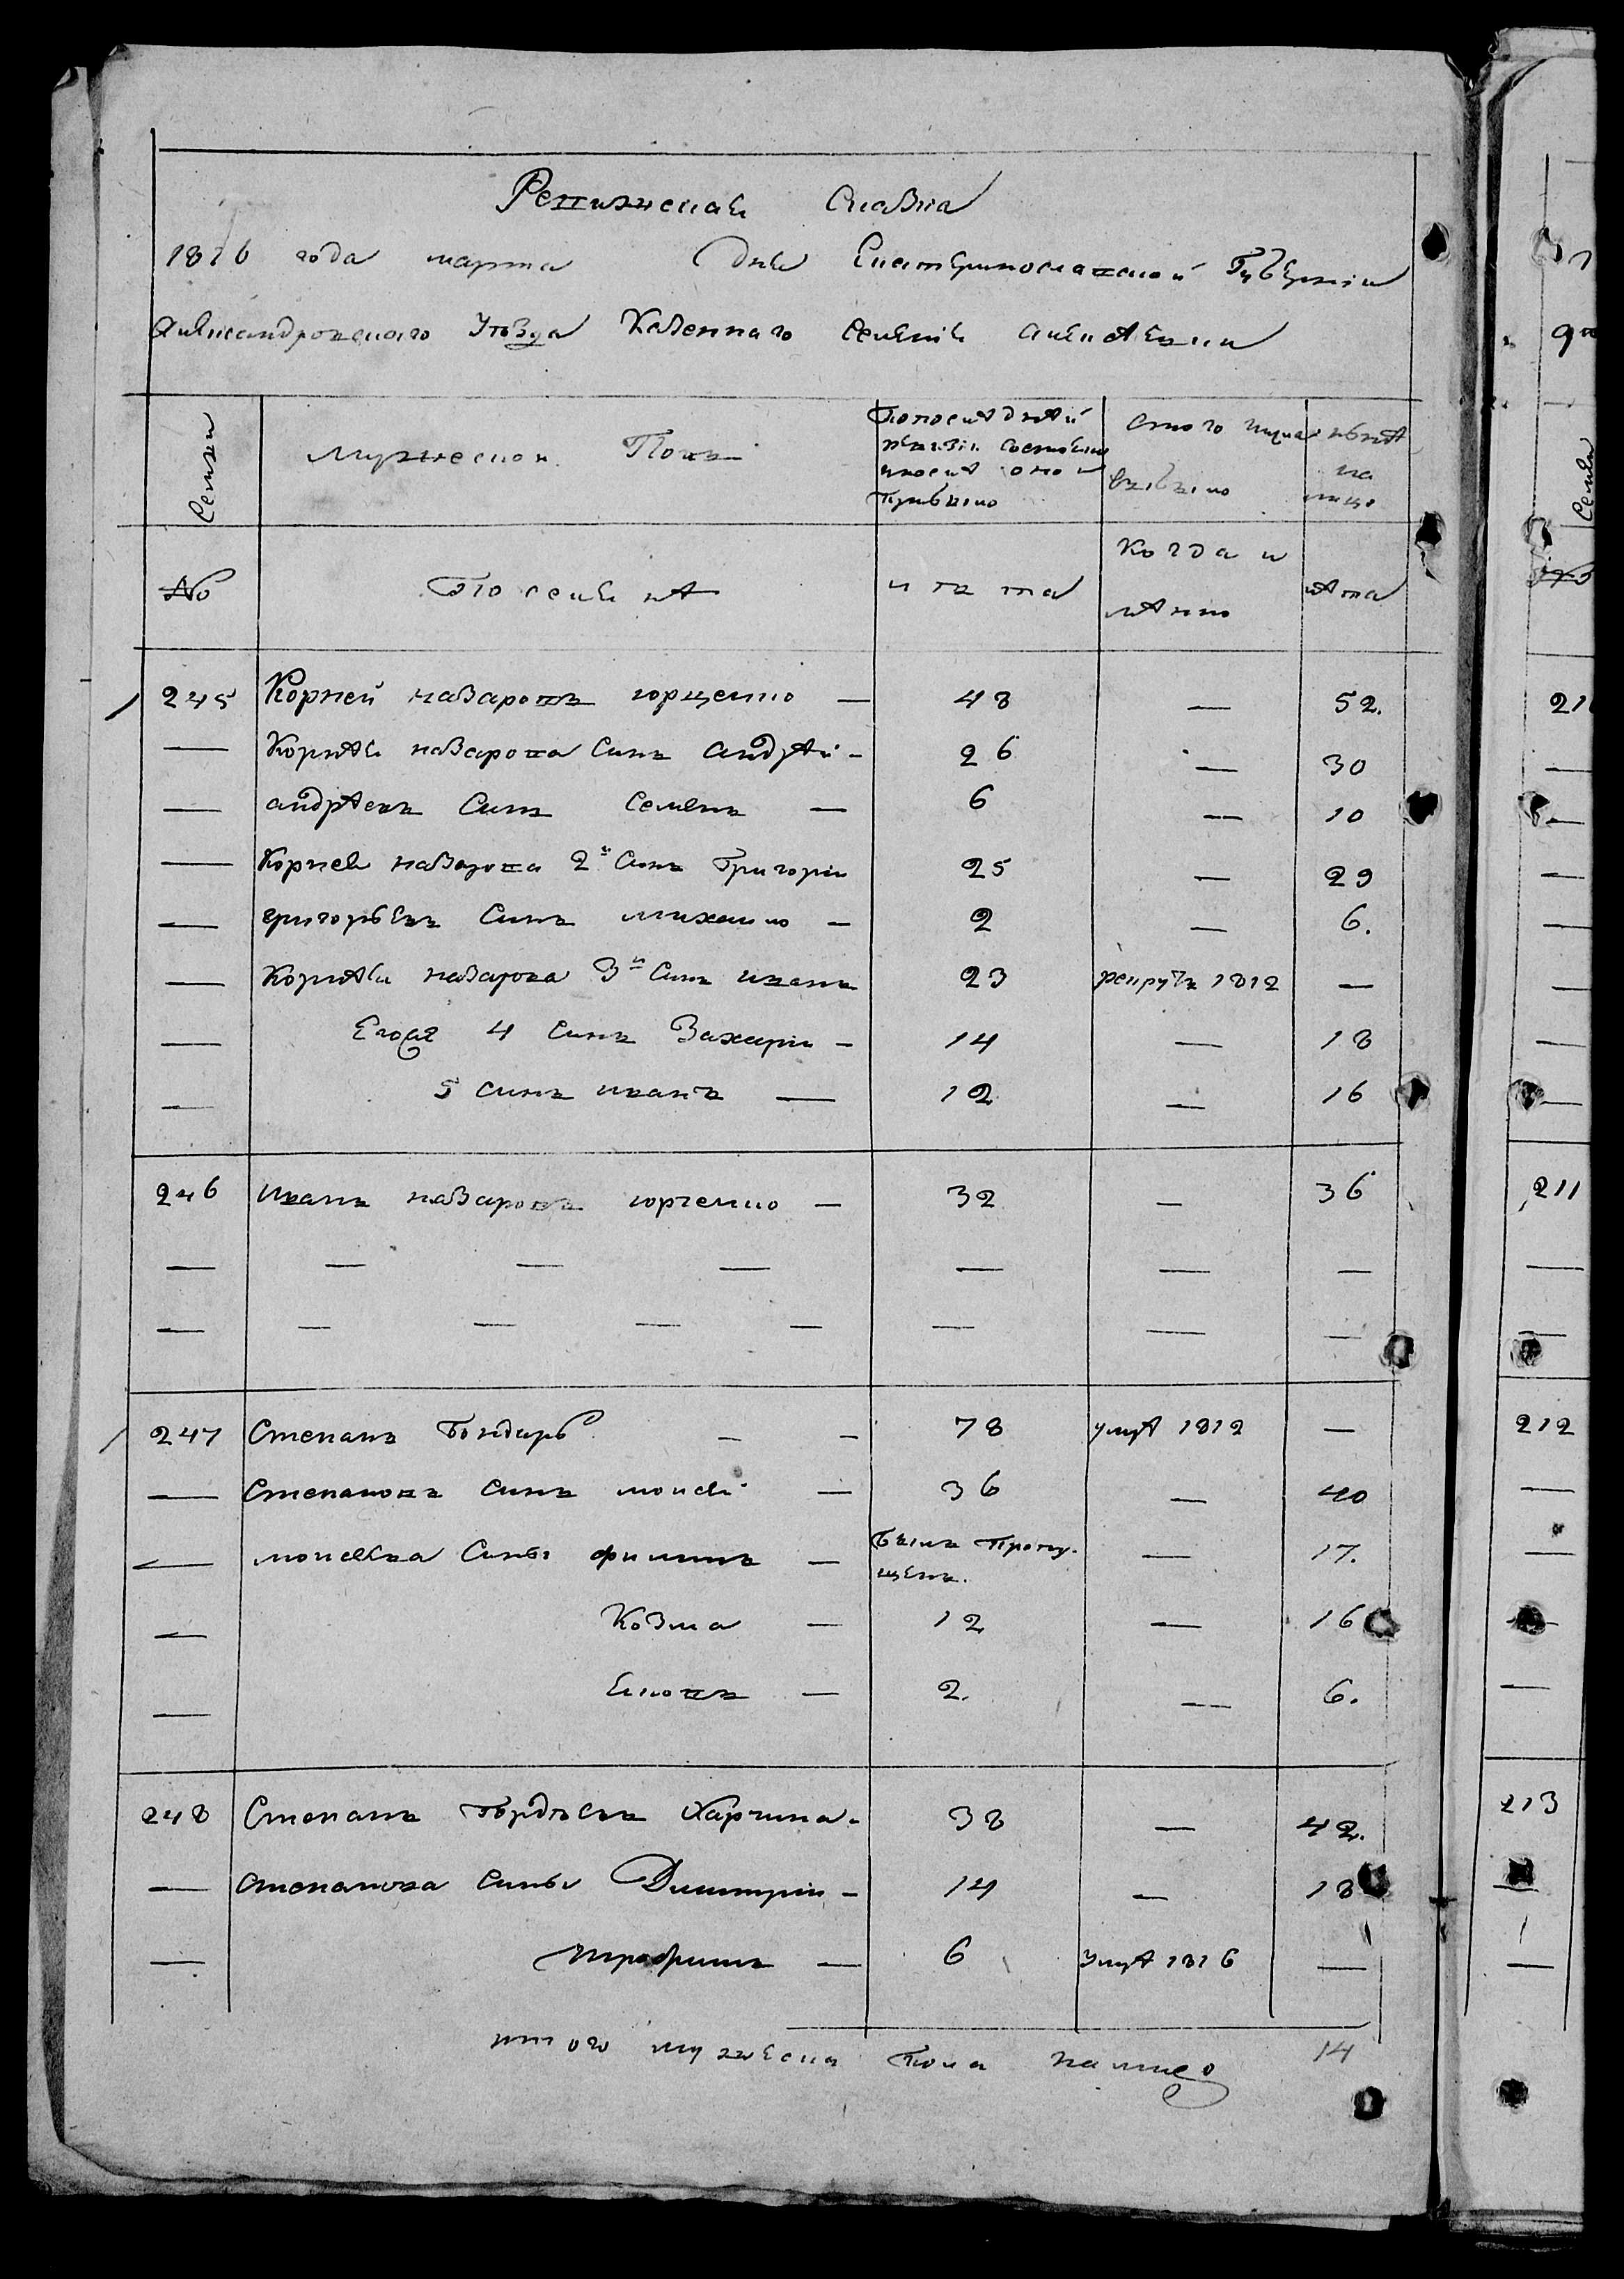 Ревижская Сказка
1816 года марта дня Екатеринославской Губерніи
Александровскаго Уѣзда Казеннаго селенія
Семьи
Мужеской Полъ
По последнѣй ревизіи состояло и после оной прибыло
Съ того числа выбыло
нынѣ на лицо
№
По семьямъ
лѣта
Когда и
лѣта
245 Корней назаровъ юрченко — 48 — 52.
— Корнѣя назарова синъ андрѣй - 26 — 30
— андрѣевъ синъ семенъ — 6 — 10
— Корнея назарова 2й синъ Григорій 25 — 29
— григорьевъ синъ михаило — 2 — 6.
— Корнѣя назарова 3й синъ иванъ 23 рекрутъ 1812 —
— Егоже 4 синъ Захарій - 14 — 18
— 5 синъ иванъ — 12 — 16
246 Иванъ назаровъ юрченко — 32 — 36
— — — — — — —
— — — — — — — —
247 Степанъ Бондарь — — 78 умрѣ 1812 —
— Степановъ синъ моисей — 36 — 40
— моисеева сины филипъ — былъ пропущенъ. — 17.
— Козма — 12 — 16
— — 2. — 6.
248 Степанъ Гордѣевъ Харчина - 38 — 42.
— степанова сины Димитрій - 14 — 18
— трофимъ — 6 умрѣ 1816 —
итого мужеска пола налицо 14
9
Семьи
№
21
—
—
—
—
—
—
—
211
—
—
212
—
—
—
—
213
—
—